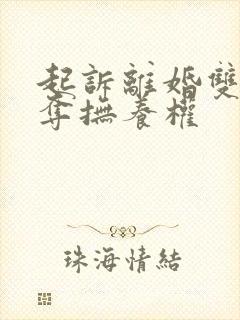 起訴離婚雙
奪撫養權
珠海情結